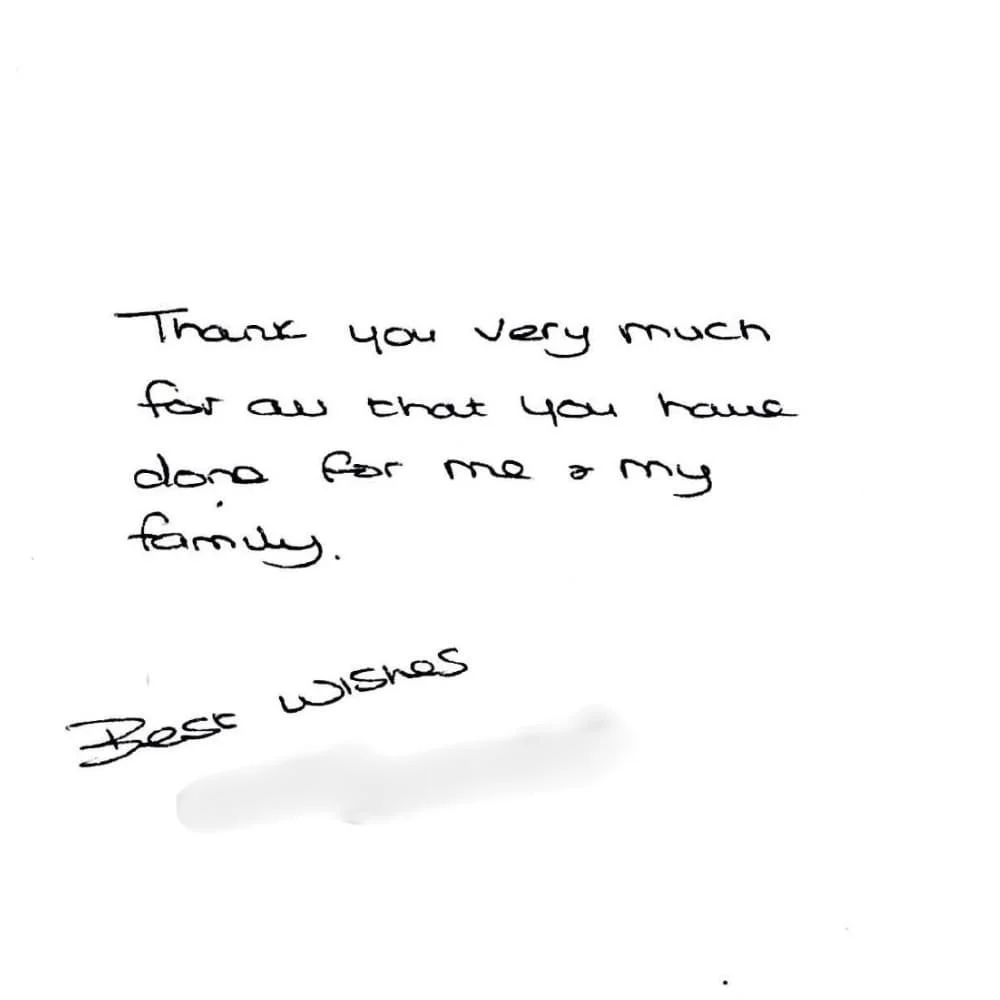 Thank you very much
for all that you have
done for me & my
family.
Best wishes